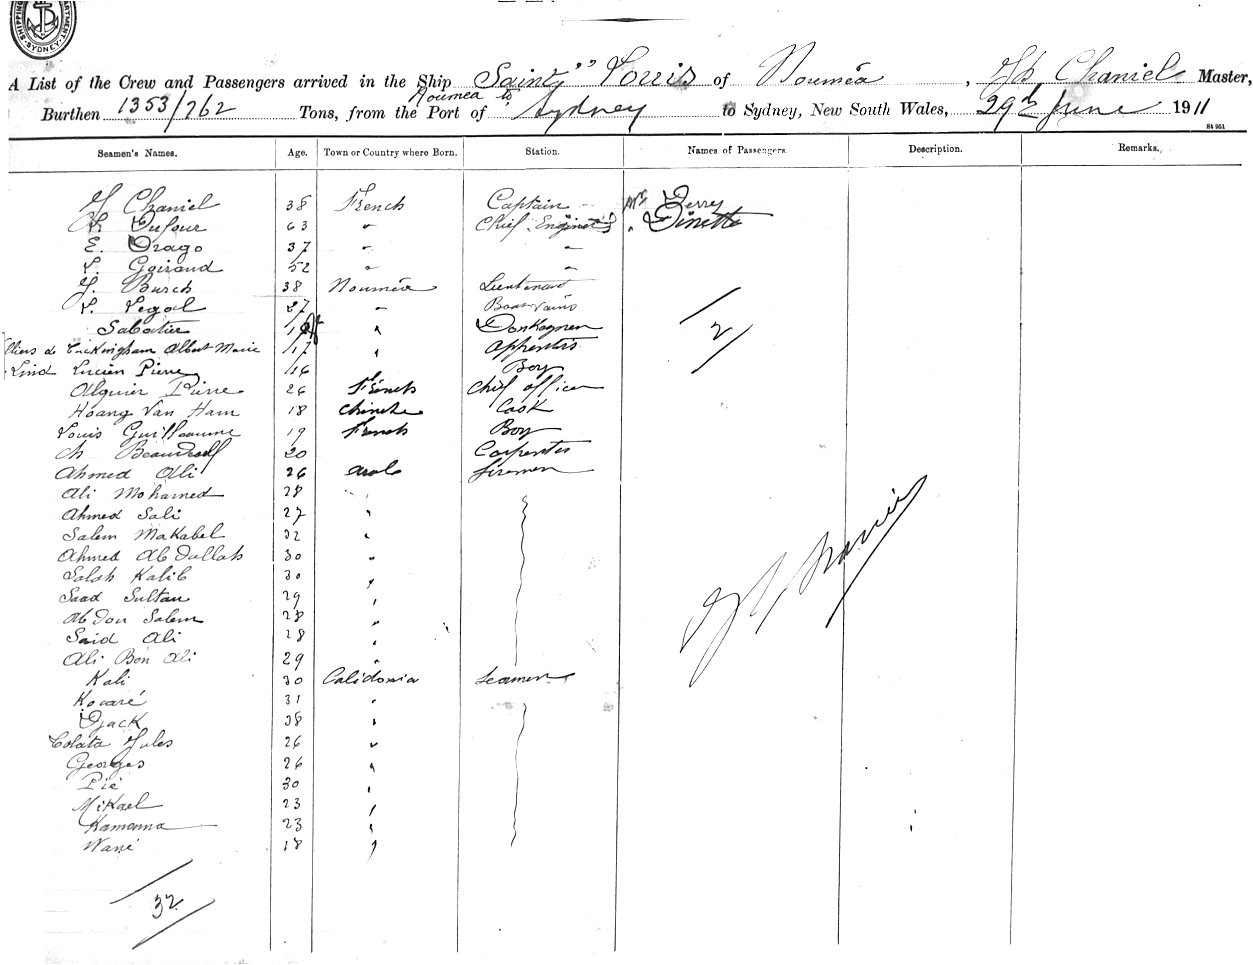 SHIPPING DEPARTMENT. SYDNEY.
A List of the Crew and Passengers arrived in the Ship Saint Louis of Nouméa, Chaniel Master,
Burthen 1353/762 Tons, from the Port of Noumea to Sydney to Sydney, New South Wales, 29th June 1911
St 951
Seamen's Names. Age. Town or Country where Born. Station. Names of Passengers. Description. Remarks.
Chaniel 38 French Captain Mr
Dufour 63 " Chief Engineer " Dinette
E. Drago 37 " "
Goirand 52 " "
Busch 38 Nouméa Lieutenant
Legal 27 "
Sabatier " Donkeyman
Albert Marie 17 "
Lind Lucien Pierre 16 Boy
Alquier Pierre 26 French Chief officer
Hoang Van Ham 18 Cook
Louis Guillaume 19 French Boy
20 Carpenter
Ahmed Ali 26 Arab Firemen
Ali Mohamed 28 "
Ahmed Sali 27 "
Salem Makabel 32 "
Ahmed Abdallah 30 "
Salah Kalib 30 "
Saad Sultan 29 "
Abdou Salem 28 "
Said Ali 28 "
Ali Ben Ali 29 "
Kali 30 Calidonia Seamen
Kocaré 31 "
Djack 38 "
Colata Jules 26 "
Georges 26 "
Pié 30 "
Mikael 23 "
Kamoena 23 "
Wané 18 "
2
32